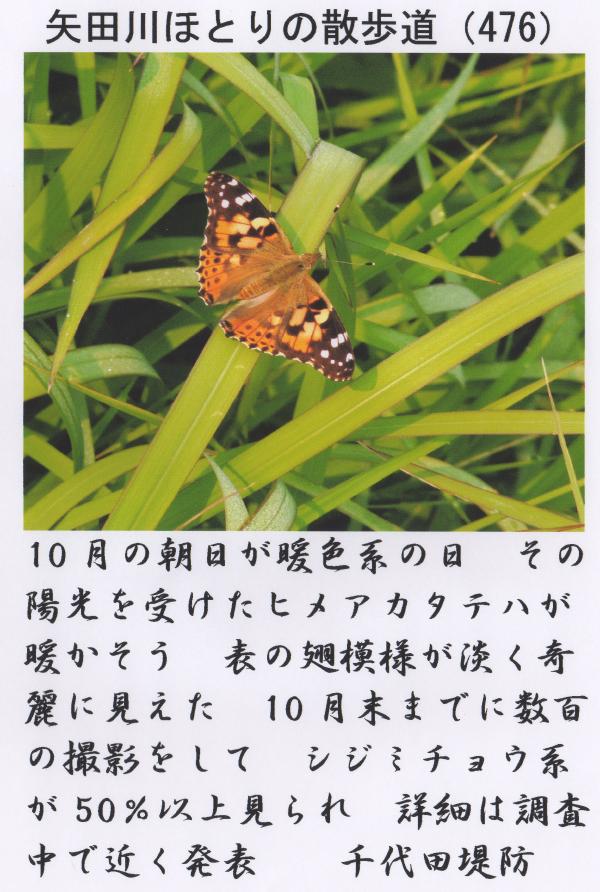 矢田川ほとりの散歩道（476）
10月の朝日が暖色系の日　その
陽光を受けたヒメアカタテハが
暖かそう　表の翅模様が淡く奇
麗に見えた　10月末までに数百
の撮影をして　シジミチョウ系
が50%以上見られ　詳細は調査
中で近く発表　　千代田堤防